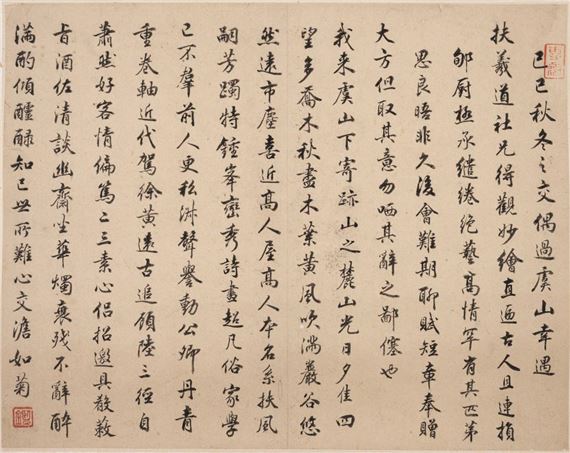 己巳秋冬之交偶過虞山幸遇
扶羲道社兄得觀妙繪直逼古人且連損
郇廚極承繾綣絶藝高情罕有其匹第
思良晤非久後會難期聊賦短章奉贈
大方但取其意勿哂其辭之鄙僿也
我來虞山下寄跡山之麓山光日夕佳四
望多喬木秋盡木葉黃風吹滿巖谷悠
然遠市塵喜近髙人屋髙人本名系扶風
嗣芳躅特鍾峯巒秀詩畫超凡俗家學
已不羣前人更私淑聲譽動公卿丹青
重卷軸近代駕徐黃遠古追顧陸三徑自
蕭然好客情偏篤二三素心侶招邀具殽蔌
旨酒佐清談幽齋坐華燭衰殘不辭醉
滿酌傾醽醁知己世所難心交澹如菊